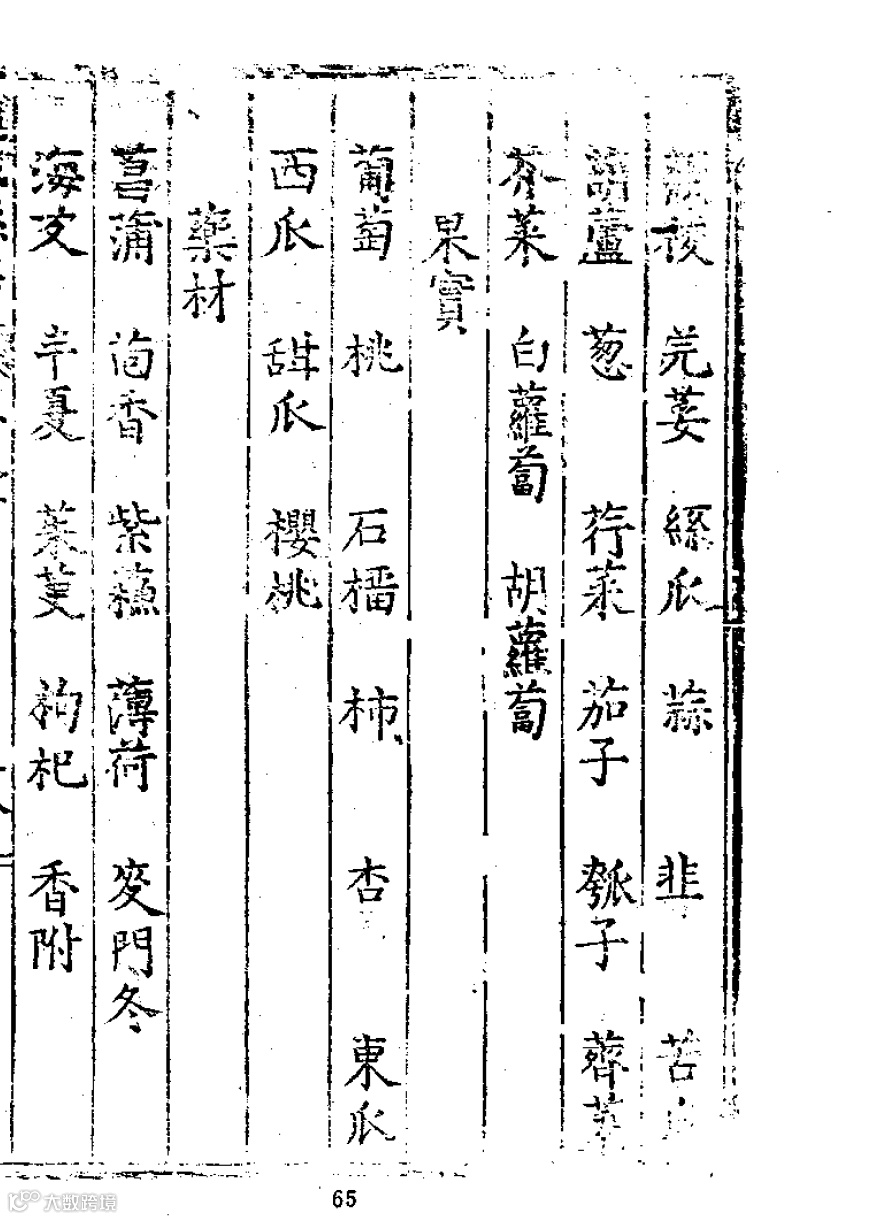 菠 芫荽 絲瓜 蒜 韭 苦
葫蘆 葱 荇菜 茄子 瓠子 薺菜
芥菜 白蘿蔔 胡蘿蔔
果實
葡萄 桃 石橊 柿 杏 東瓜
西瓜 甜瓜 櫻桃
藥材
菖蒲 茴香 紫蘓 薄荷 麥門冬
海艾 半夏 茱萸 枸杞 香附
65
大数跨境